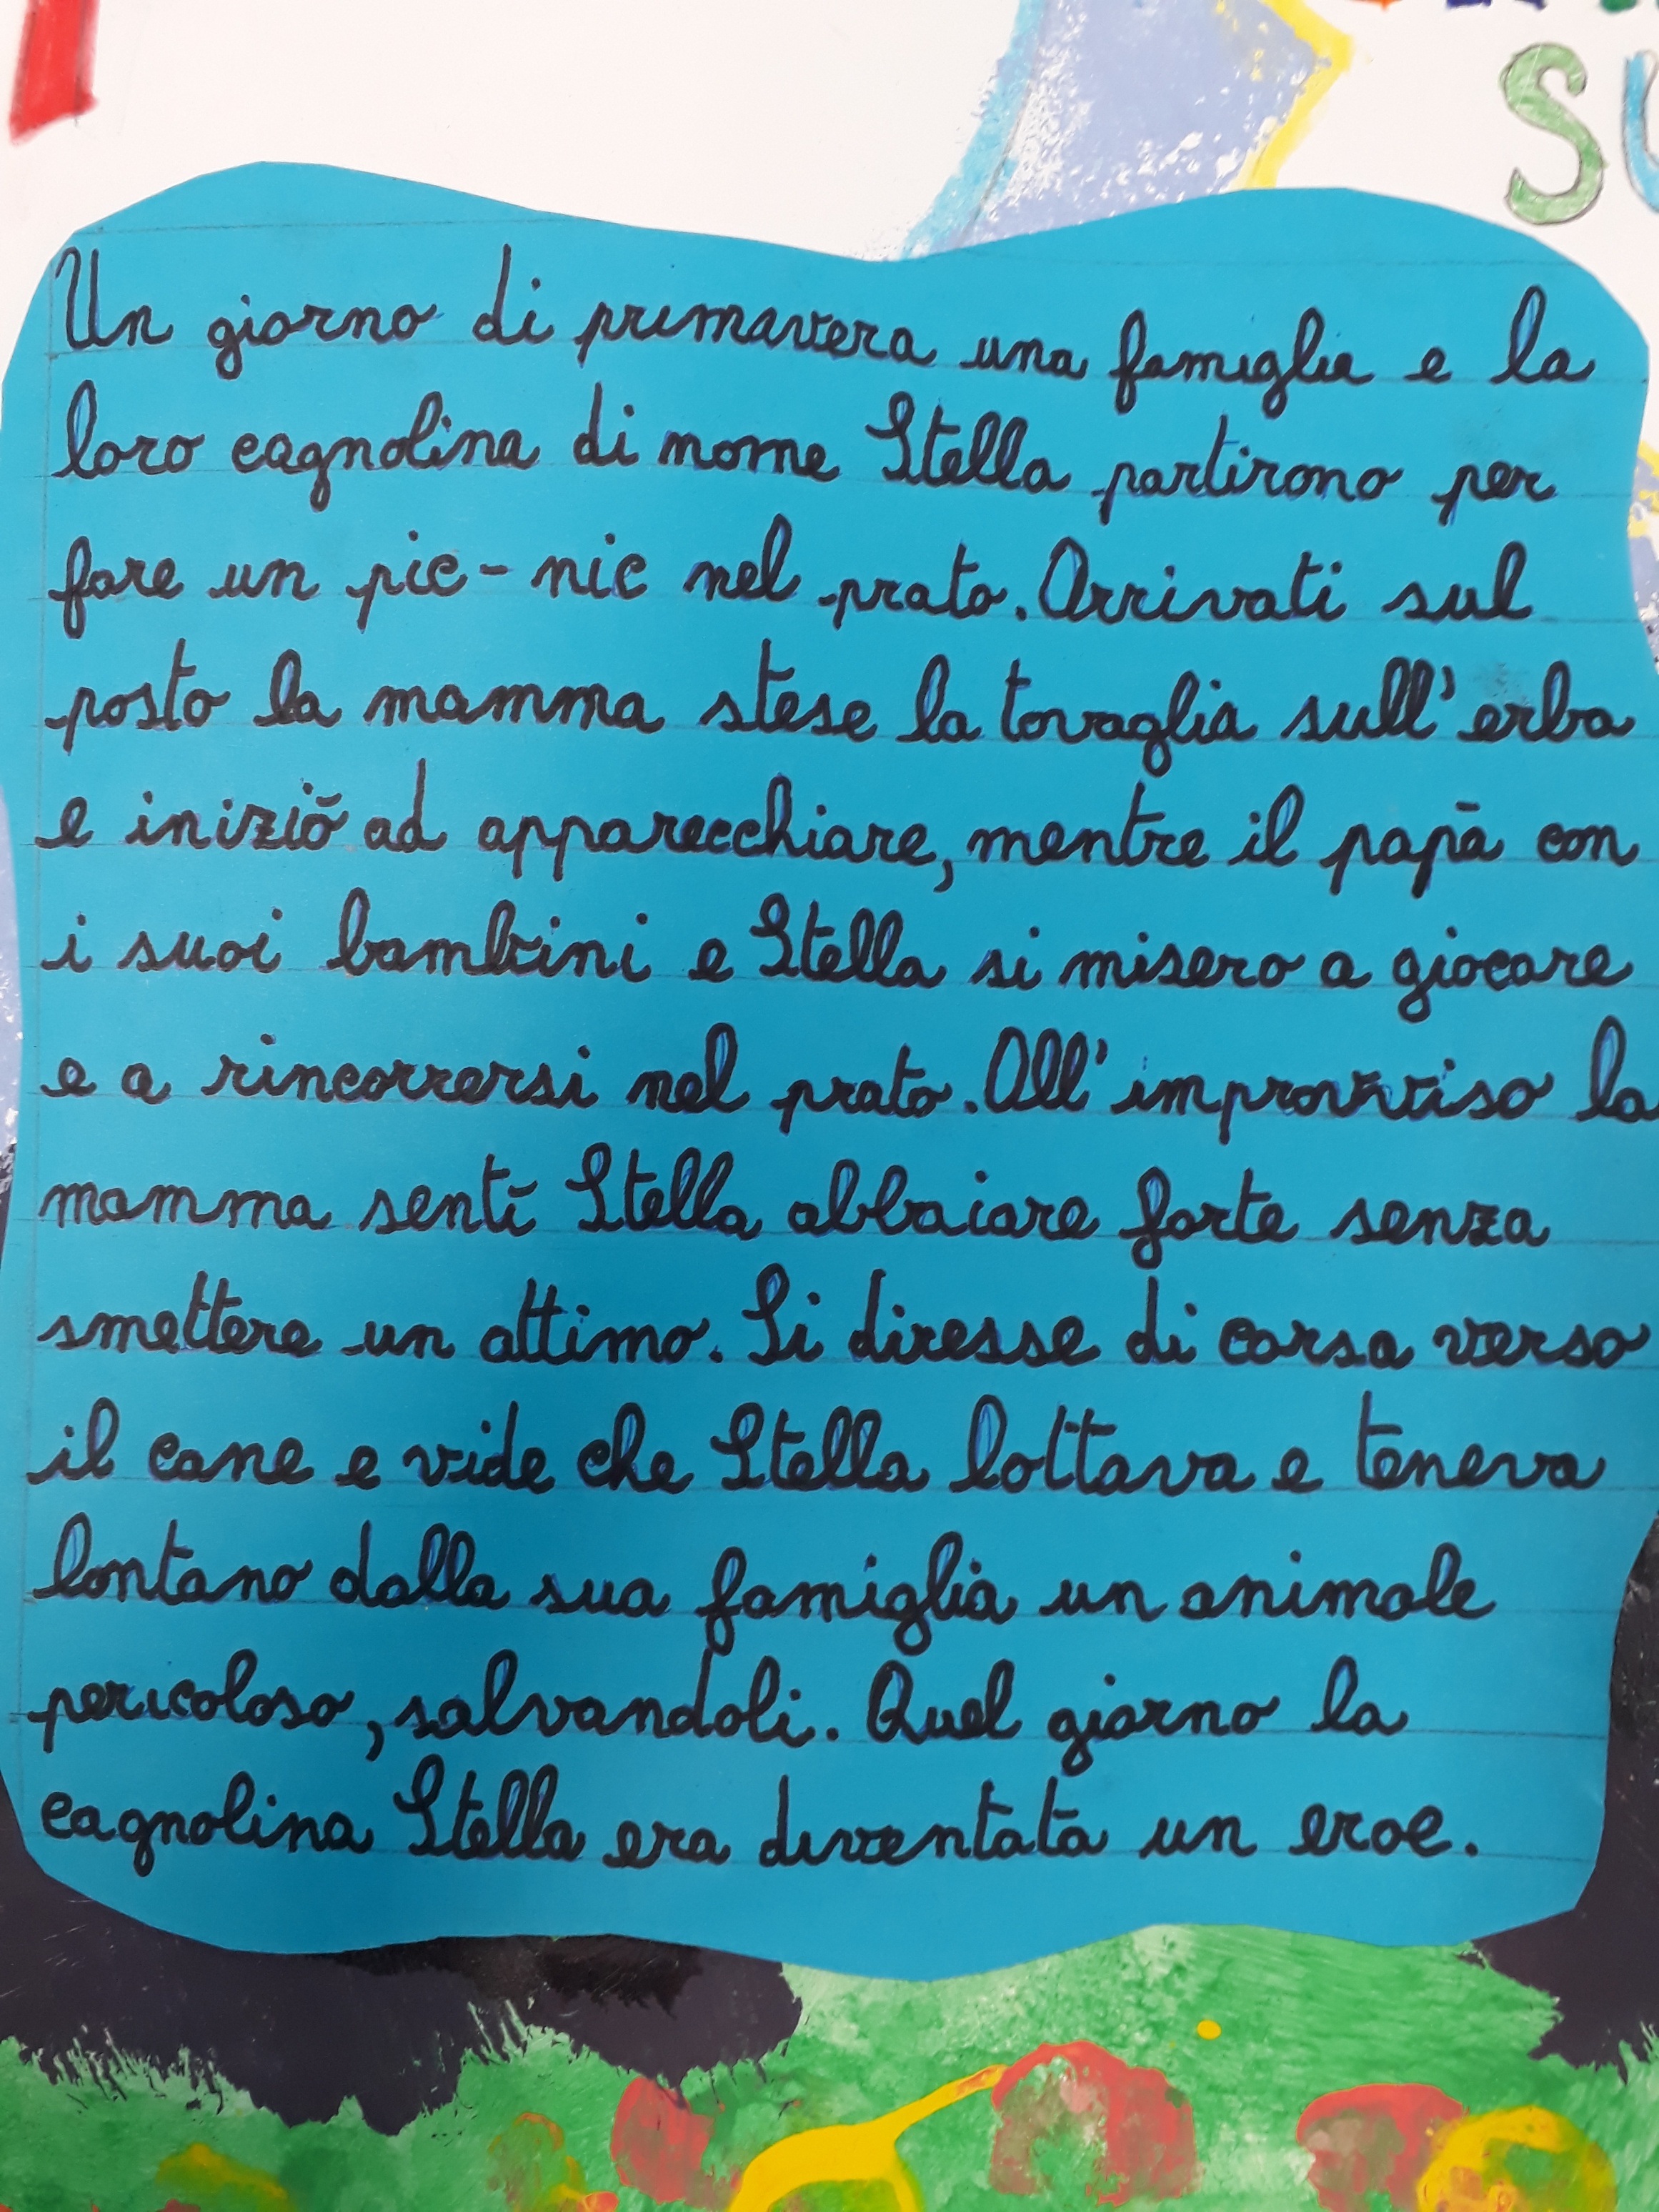 SU
Un giorno di primavera una famiglia e la
loro cagnolina di nome Stella partirono per
fare un pic-nic nel prato. Arrivati sul
posto la mamma stese la tovaglia sull'erba
e iniziò ad apparecchiare, mentre il papà con
i suoi bambini e Stella si misero a giocare
e a rincorrersi nel prato. All'improvviso la
mamma sentì Stella abbaiare forte senza
smettere un attimo. Si diresse di corsa verso
il cane e vide che Stella lottava e teneva
lontano dalla sua famiglia un animale
pericoloso, salvandoli. Quel giorno la
cagnolina Stella era diventata un eroe.